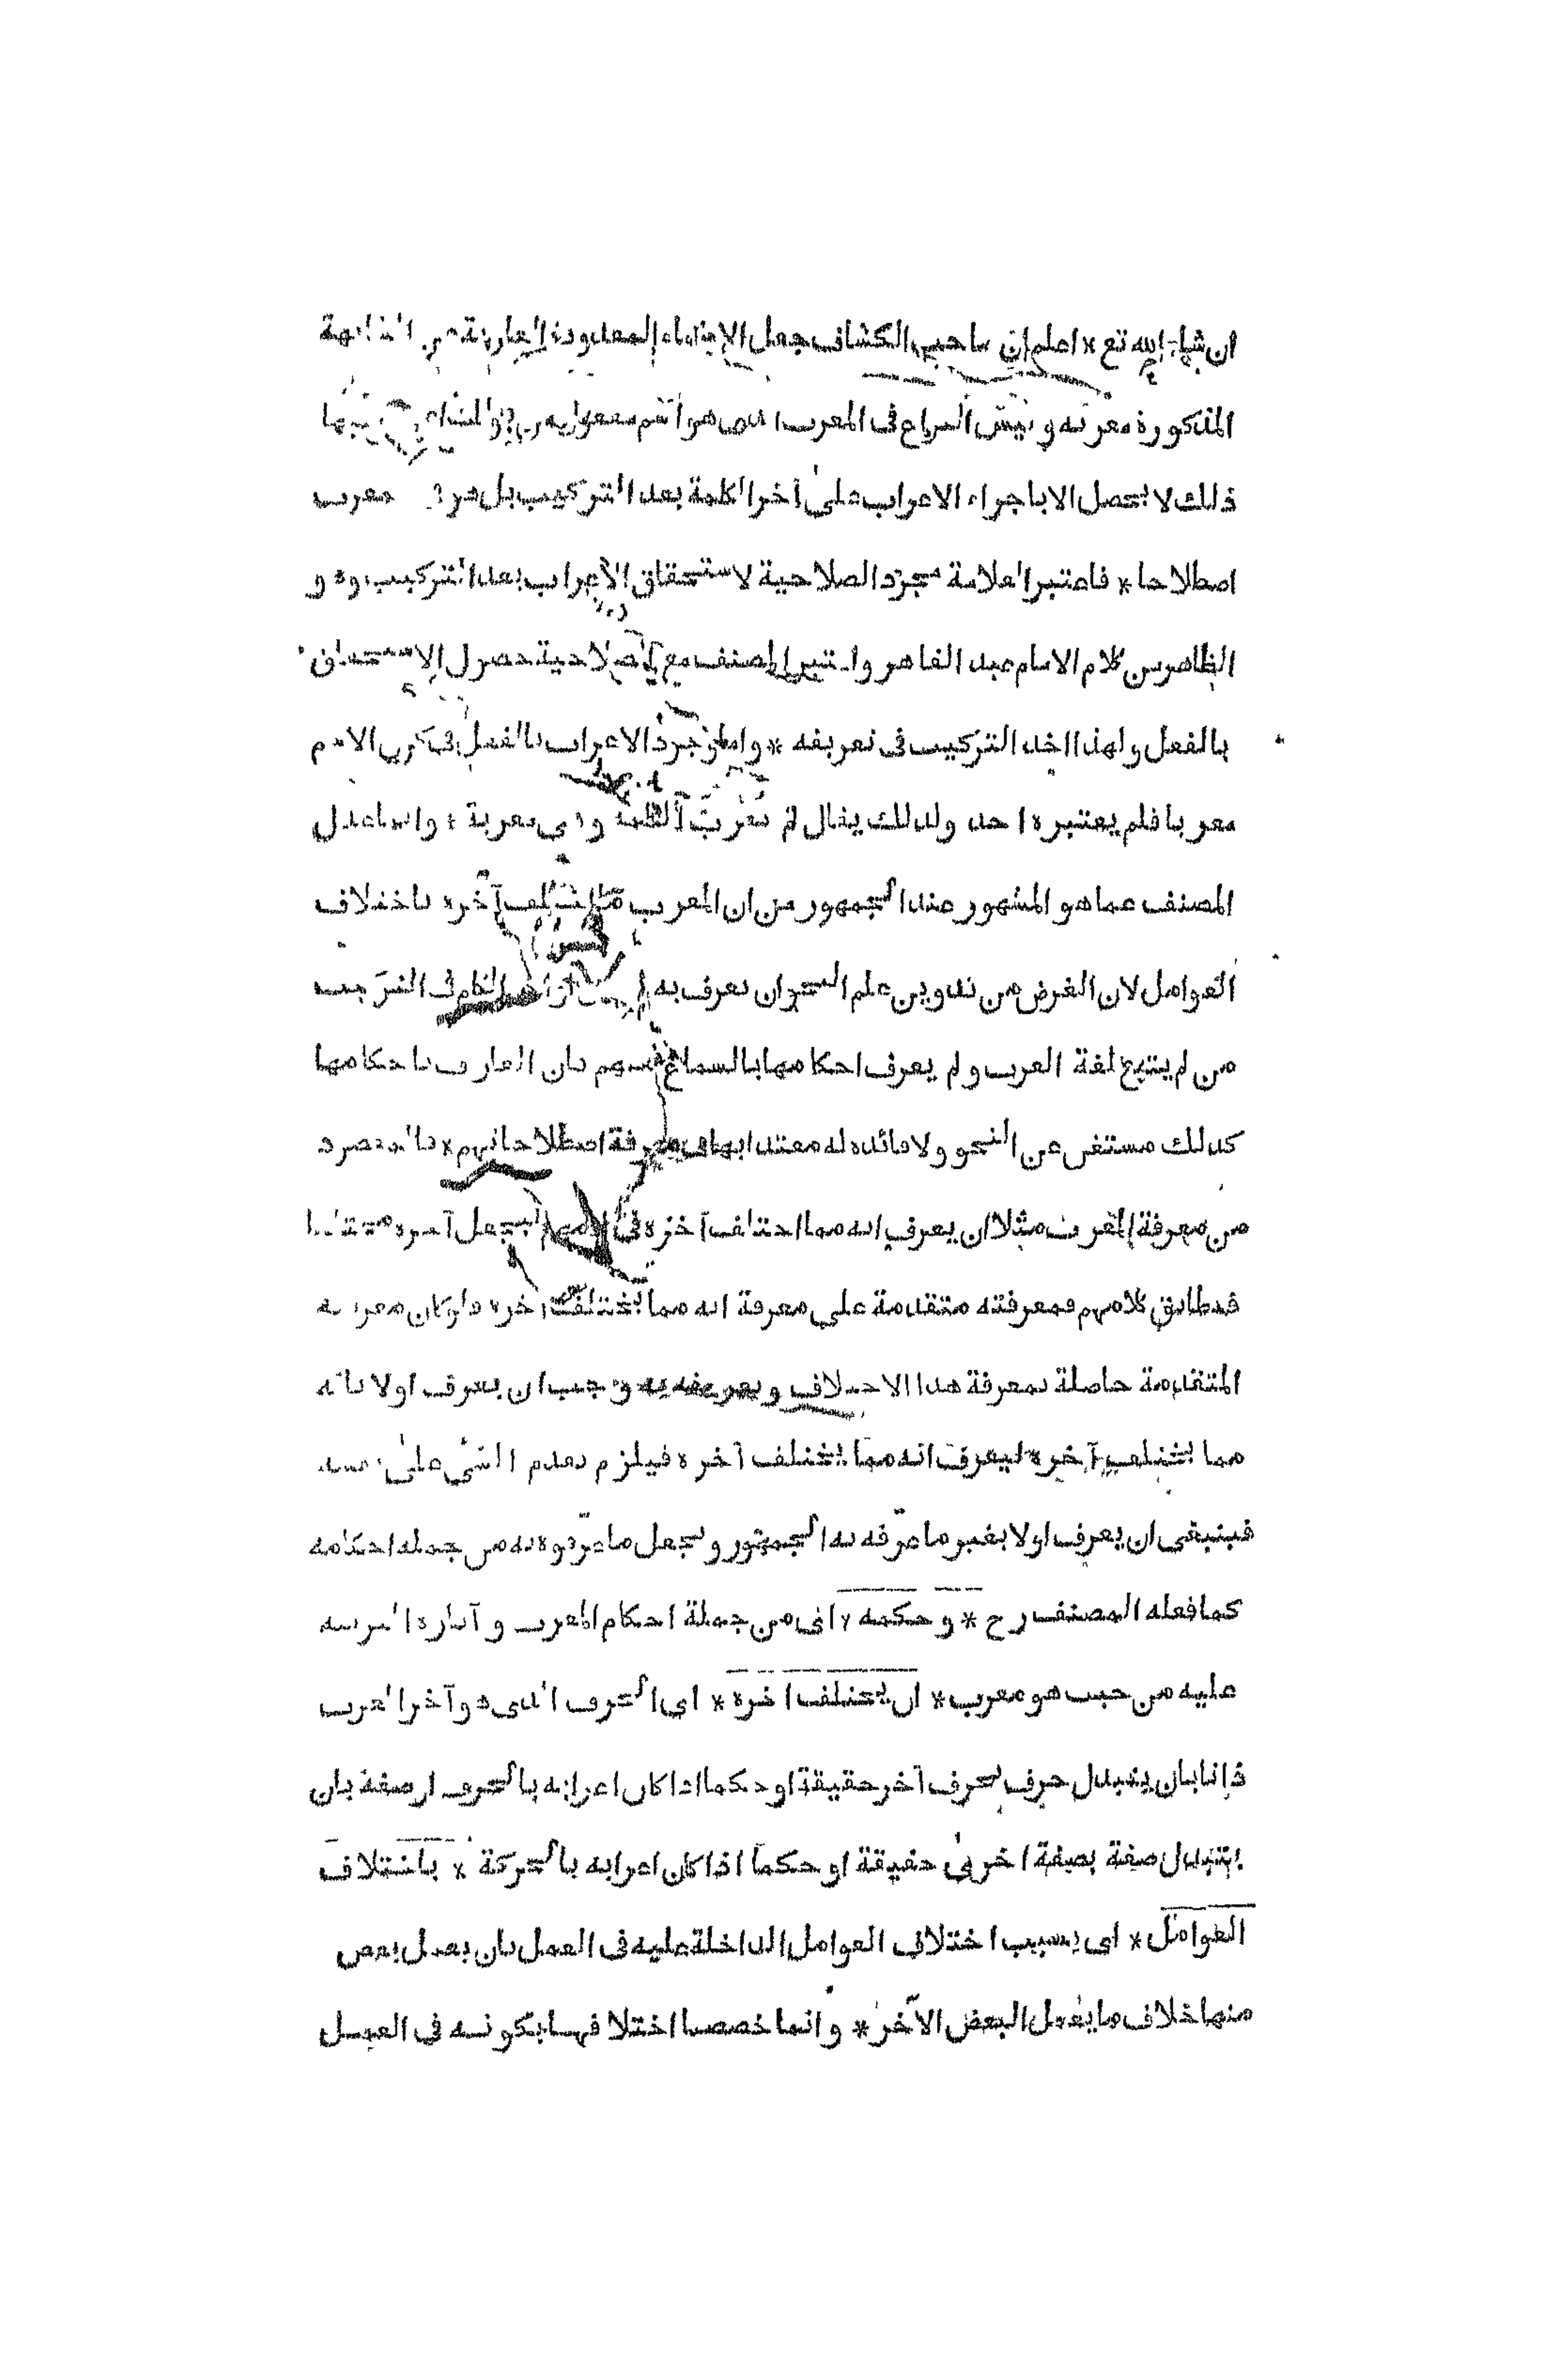 ان شاء الله تع * اعلم ان صاحب الكشاف جعل الاسماء المعدودة العارية عن المشابهة
المذكورة معربة وليس النزاع فى المعرب الذى هو اسم مفعول
ذلك لا يحصل الا باجراء الاعراب على آخر الكلمة بعد التركيب بل معرب
اصطلاحا * فاعتبر العلامة مجرد الصلاحية لاستحقاق الاعراب بعد التركيب وهو
الظاهر من كلام الامام عبد القاهر واعتبر المصنف مع الصلاحية حصول الاستحقاق
بالفعل ولهذا اخذ التركيب فى تعريفه * واما وجود الاعراب بالفعل فى كون الاسم
معربا فلم يعتبره احد ولذلك يقال لم تعرب الكلمة وهى معربة * وانما عدل
المصنف عما هو المشهور عند الجمهور من ان المعرب ما اختلف آخره باختلاف
العوامل لان الغرض من تدوين علم النحو ان يعرف به احوال اواخر الكلم فى التركيب
من لم يتتبع لغة العرب ولم يعرف احكامها بالسماع منهم فان العارف باحكامها
كذلك مستغن عن النحو ولا فائدة له معتدا بها فى معرفة اصطلاحاتهم * فالمقصود
من معرفة المعرب مثلا ان يعرف انه مما اختلف آخره فى كلامهم ليجعل آخره مختلفا
فيطابق كلامهم فمعرفته متقدمة على معرفة انه مما يختلف آخره فلو كان معرفته
المتقدمة حاصلة بمعرفة هذا الاختلاف وتعريفه به وجب ان يعرف اولا بانه
مما يختلف آخره ليعرف انه مما يختلف آخره فيلزم تقدم الشى على نفسه
فينبغى ان يعرف اولا بغير ما عرفه به الجمهور ويجعل ما عرفوه به من جملة احكامه
كما فعله المصنف رح * وحكمه * اى من جملة احكام المعرب وآثاره المرتبة
عليه من حيث هو معرب * ان يختلف اخره * اى الحرف الذى هو آخر المعرب
ذاتا بان يتبدل حرف بحرف آخر حقيقة او حكما اذا كان اعرابه بالحرف او صفة بان
يتبدل صفة بصفة اخرى حقيقة او حكما اذا كان اعرابه بالحركة * باختلاف
العوامل * اى بسبب اختلاف العوامل الداخلة عليه فى العمل بان يعمل بعض
منها خلاف ما يعمل البعض الآخر * وانما خصصنا اختلافها بكونه فى العمل